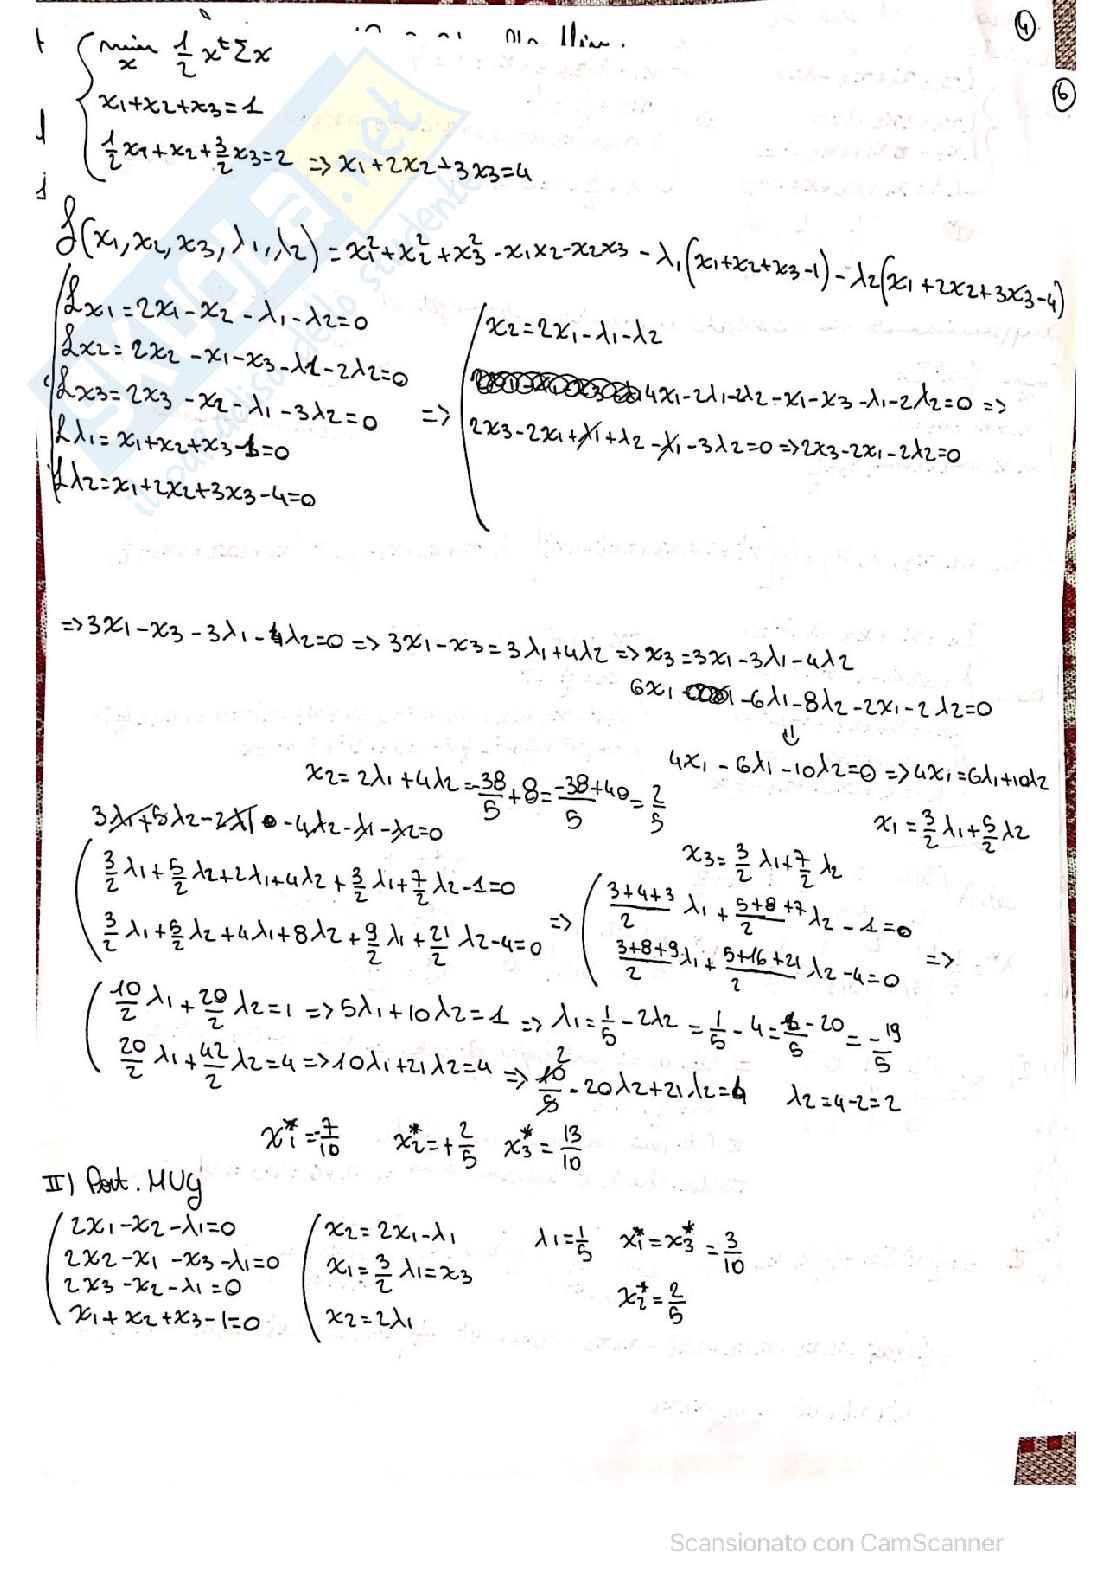 ④
⑥
min_x 1/2 x^t Σx
x1+x2+x3=1
1/2 x1+x2+3/2 x3=2 => x1+2x2+3x3=4
L(x1,x2,x3,λ1,λ2)=x1²+x2²+x3²-x1x2-x2x3-λ1(x1+x2+x3-1)-λ2(x1+2x2+3x3-4)
Lx1=2x1-x2-λ1-λ2=0
Lx2=2x2-x1-x3-λ1-2λ2=0
Lx3=2x3-x2-λ1-3λ2=0 =>
Lλ1=x1+x2+x3-1=0
Lλ2=x1+2x2+3x3-4=0
x2=2x1-λ1-λ2
4x1-2λ1-2λ2-x1-x3-λ1-2λ2=0 =>
2x3-2x1+λ1+λ2-λ1-3λ2=0 => 2x3-2x1-2λ2=0
=> 3x1-x3-3λ1-4λ2=0 => 3x1-x3=3λ1+4λ2 => x3=3x1-3λ1-4λ2
6x1-6λ1-8λ2-2x1-2λ2=0
⇓
4x1-6λ1-10λ2=0 => 4x1=6λ1+10λ2
x2=2λ1+4λ2=-38/5+8=(-38+40)/5=2/5
x1=3/2 λ1+5/2 λ2
3λ1+5λ2-2x1-4λ2-λ1-λ2=0
x3=3/2 λ1+7/2 λ2
3/2 λ1+5/2 λ2+2λ1+4λ2+3/2 λ1+7/2 λ2-1=0
3/2 λ1+5/2 λ2+4λ1+8λ2+9/2 λ1+21/2 λ2-4=0 =>
(3+4+3)/2 λ1+(5+8+7)/2 λ2-1=0
(3+8+9)/2 λ1+(5+16+21)/2 λ2-4=0 =>
10/2 λ1+20/2 λ2=1 => 5λ1+10λ2=1 => λ1=1/5-2λ2=1/5-4=(1-20)/5=-19/5
20/2 λ1+42/2 λ2=4 => 10λ1+21λ2=4 => 10/5 2-20λ2+21λ2=4 λ2=4-2=2
x1*=-7/10 x2*=+2/5 x3*=13/10
II) Port. MUG
2x1-x2-λ1=0
2x2-x1-x3-λ1=0
2x3-x2-λ1=0
x1+x2+x3-1=0
x2=2x1-λ1
x1=3/2 λ1=x3
x2=2λ1
λ1=1/5 x1*=x3*=3/10
x2*=2/5
SKUOLA.net
il paradiso dello studente
Scansionato con CamScanner